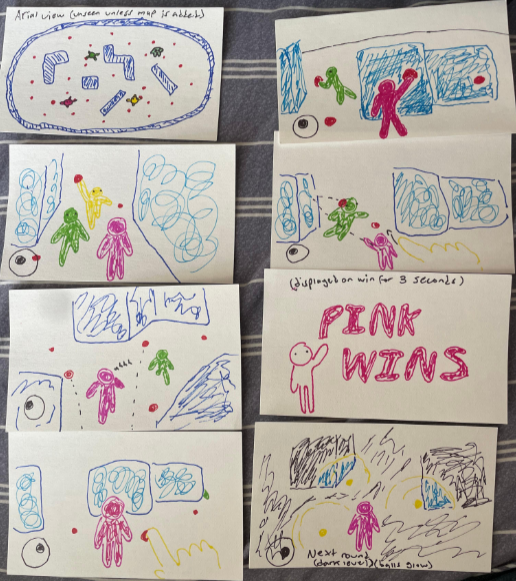 Arial view (unseen unless map is added)
ahhh
(displayed on win for 3 seconds)
PINK
WINS
Next round
(dark level) (balls glow)